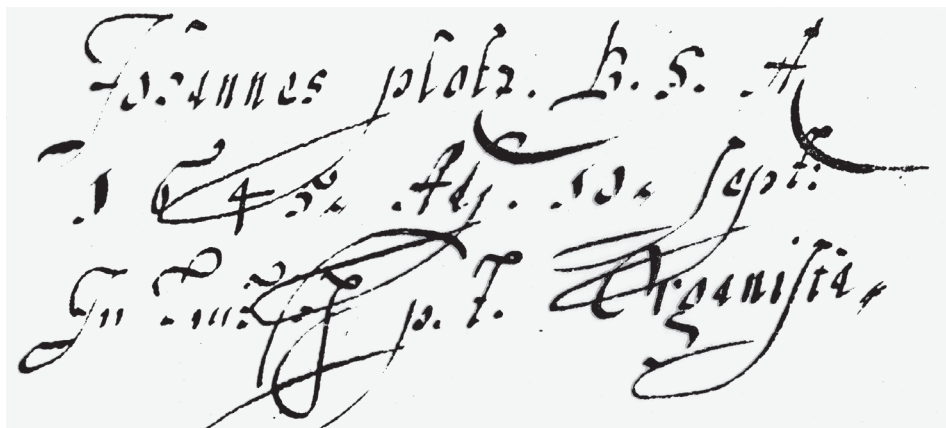 Johannes plotz. B. S. A
1645. Adj. 10. Sept:
In p. t. Organista,